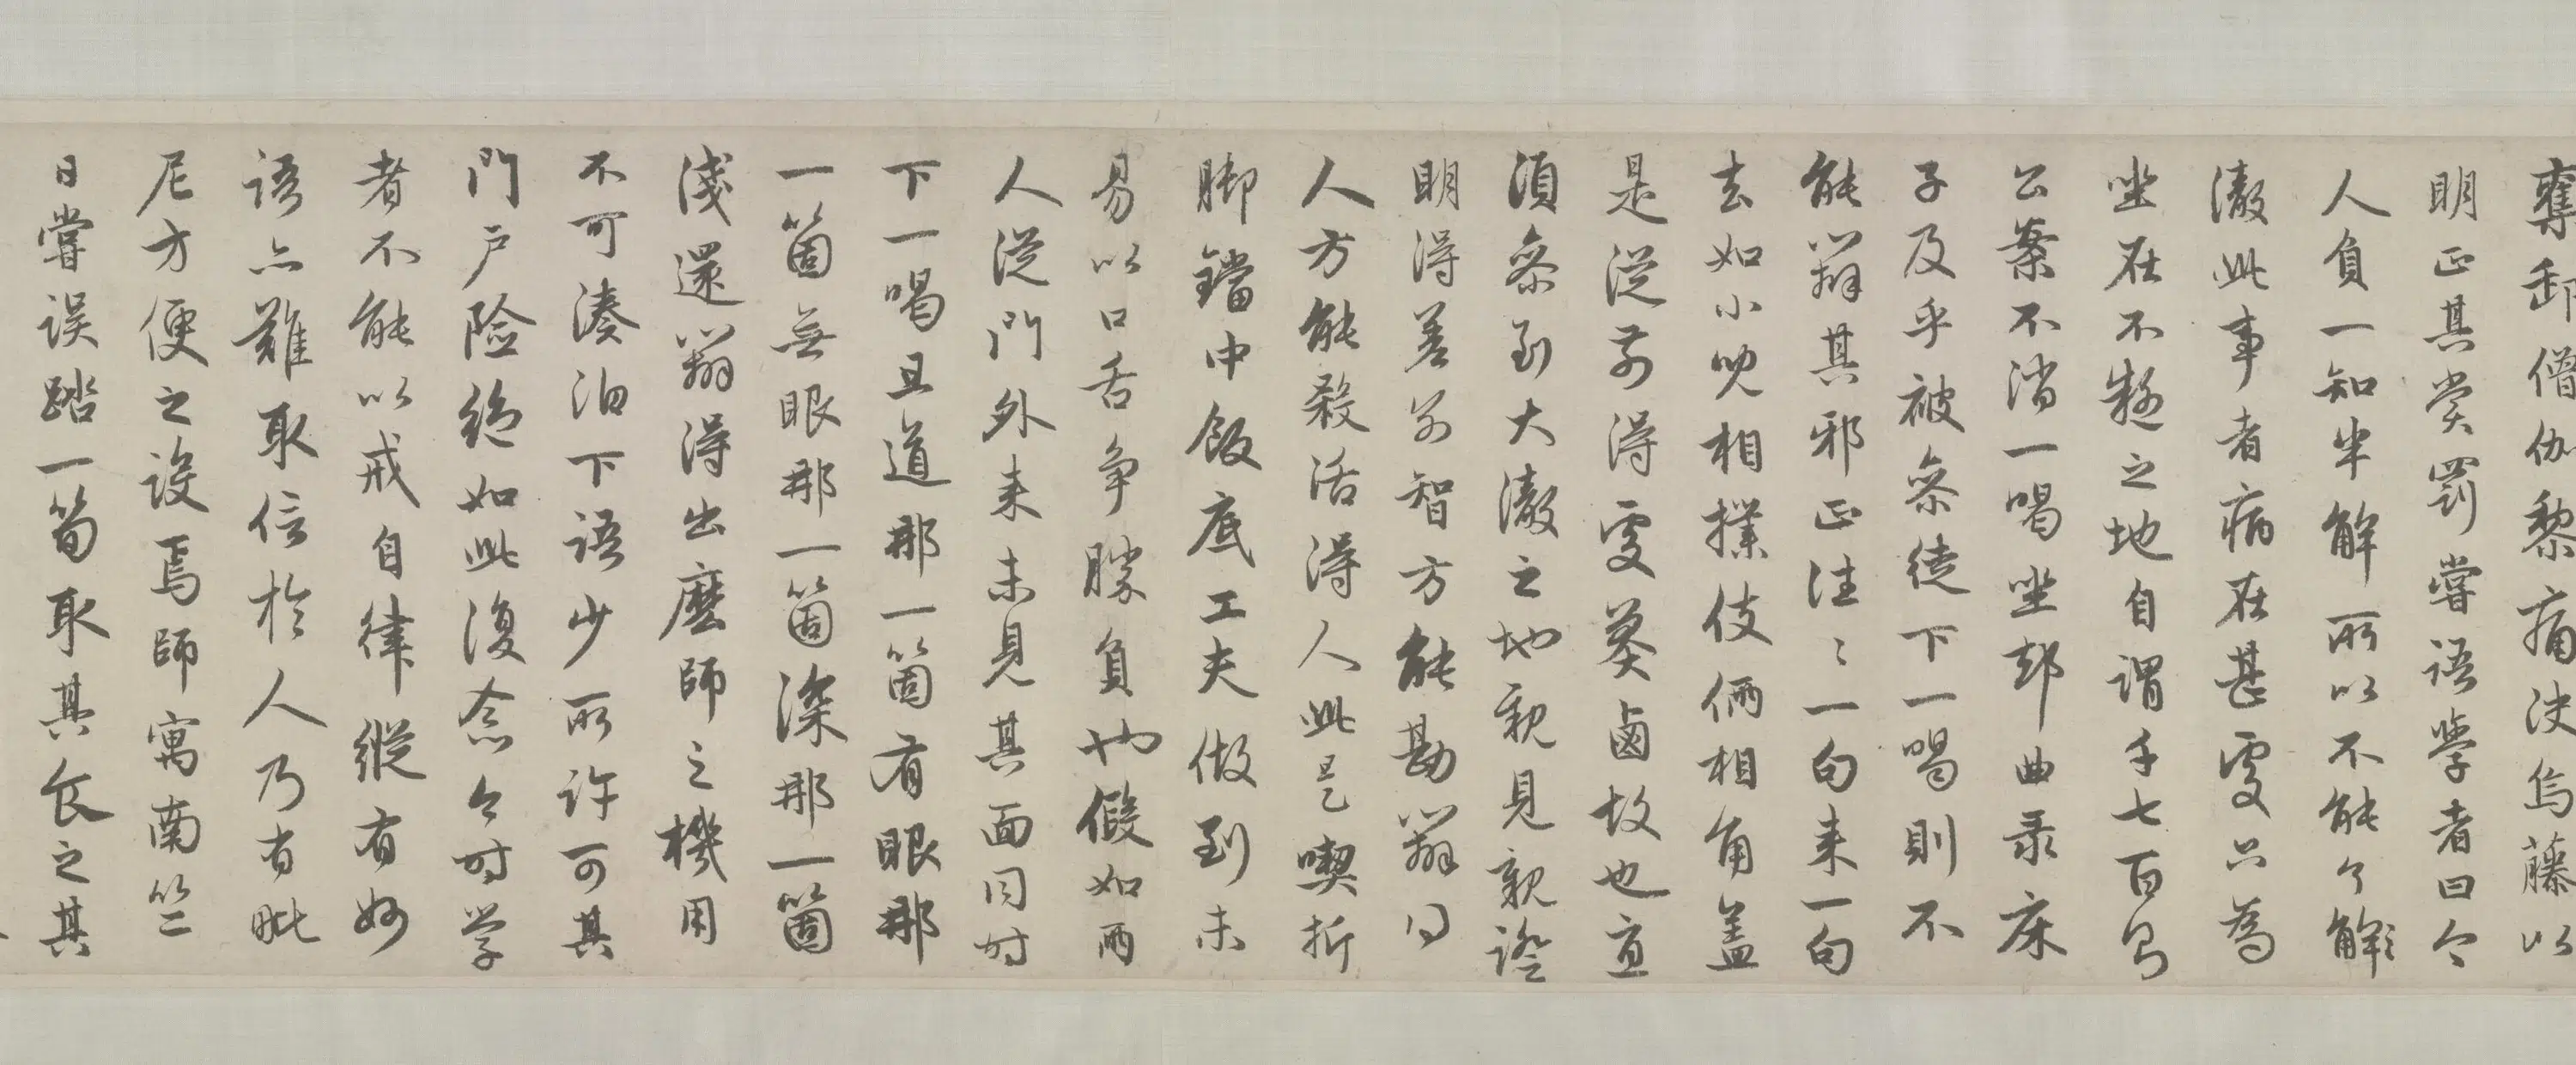 奪卸僧伽黎痛決烏藤以
明正其赏罰嘗語學者曰今
人負一知半解所以不能了解
澈此事者病在甚處只為
坐在不疑之地自謂千七百
公案不消一喝坐却曲录床
子及乎被參徒下一喝則不
能辯其邪正往〻一句来一句
去如小児相撲伎俩相角盖
是從前得處莽鹵故也直
須參到大澈之地親見親證
明得差别智方能勘辯
人方能殺活得人此是喫折
脚鐺中飯底工夫做到未
易以口舌争勝負也假如兩
人從門外来未見其面同时
下一喝且道那一箇有眼那
一箇無眼那一箇深那一箇
淺還辯得出麽師之機用
不可湊泊下語少所许可其
門户险绝如此復念今时学
者不能以戒自律縱有妙
語亦難取信於人乃有毗
尼方便之設焉師寓南竺
日嘗误踏一筍取其食之其